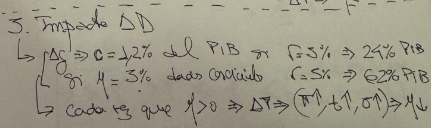 3. Impacto ΔD
↳ Δg ⇒ c = 1,2% del PIB si r=3% ⇒ 24% PIB
si η = 3% dados r=5% ⇒ 62% PIB
↳ Cada vez que η>0 ⇒ ⇒ (π↑, t↑, σ↑) ⇒ η↓